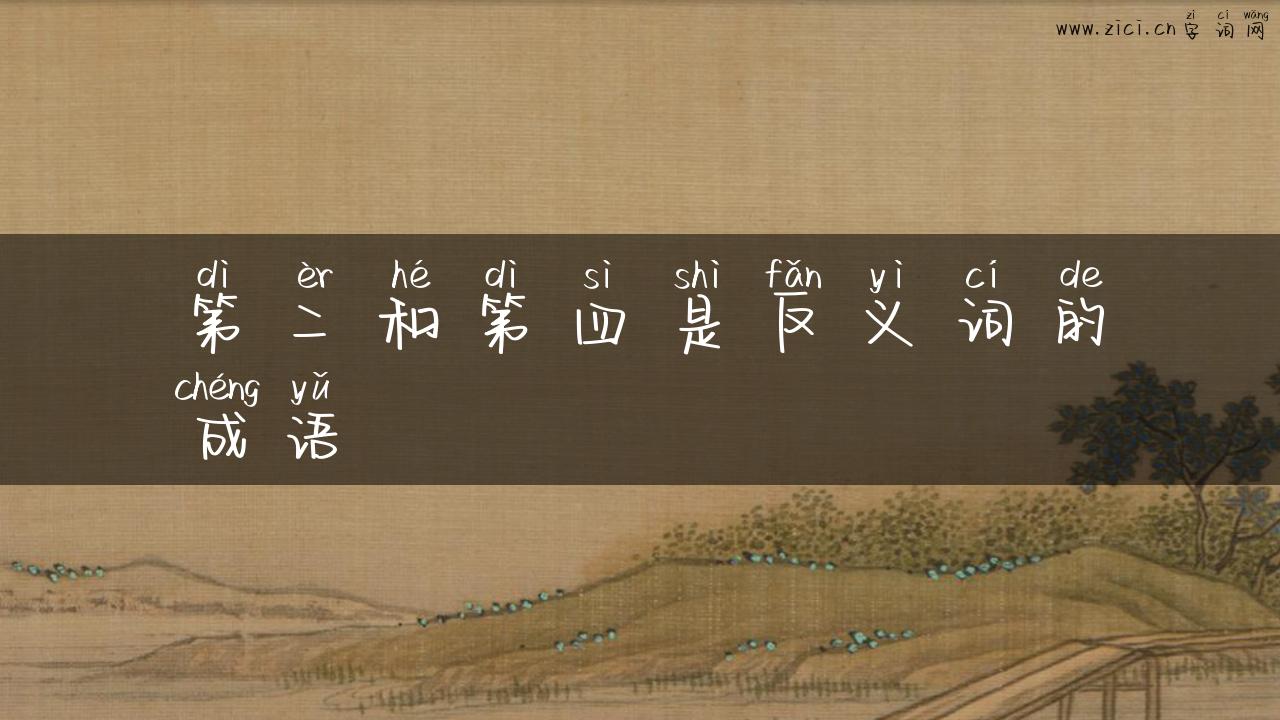 zì cí wǎng
www.zici.cn 字 词 网
dì èr hé dì sì shì fǎn yì cí de
第 二 和 第 四 是 反 义 词 的
chéng yǔ
成 语